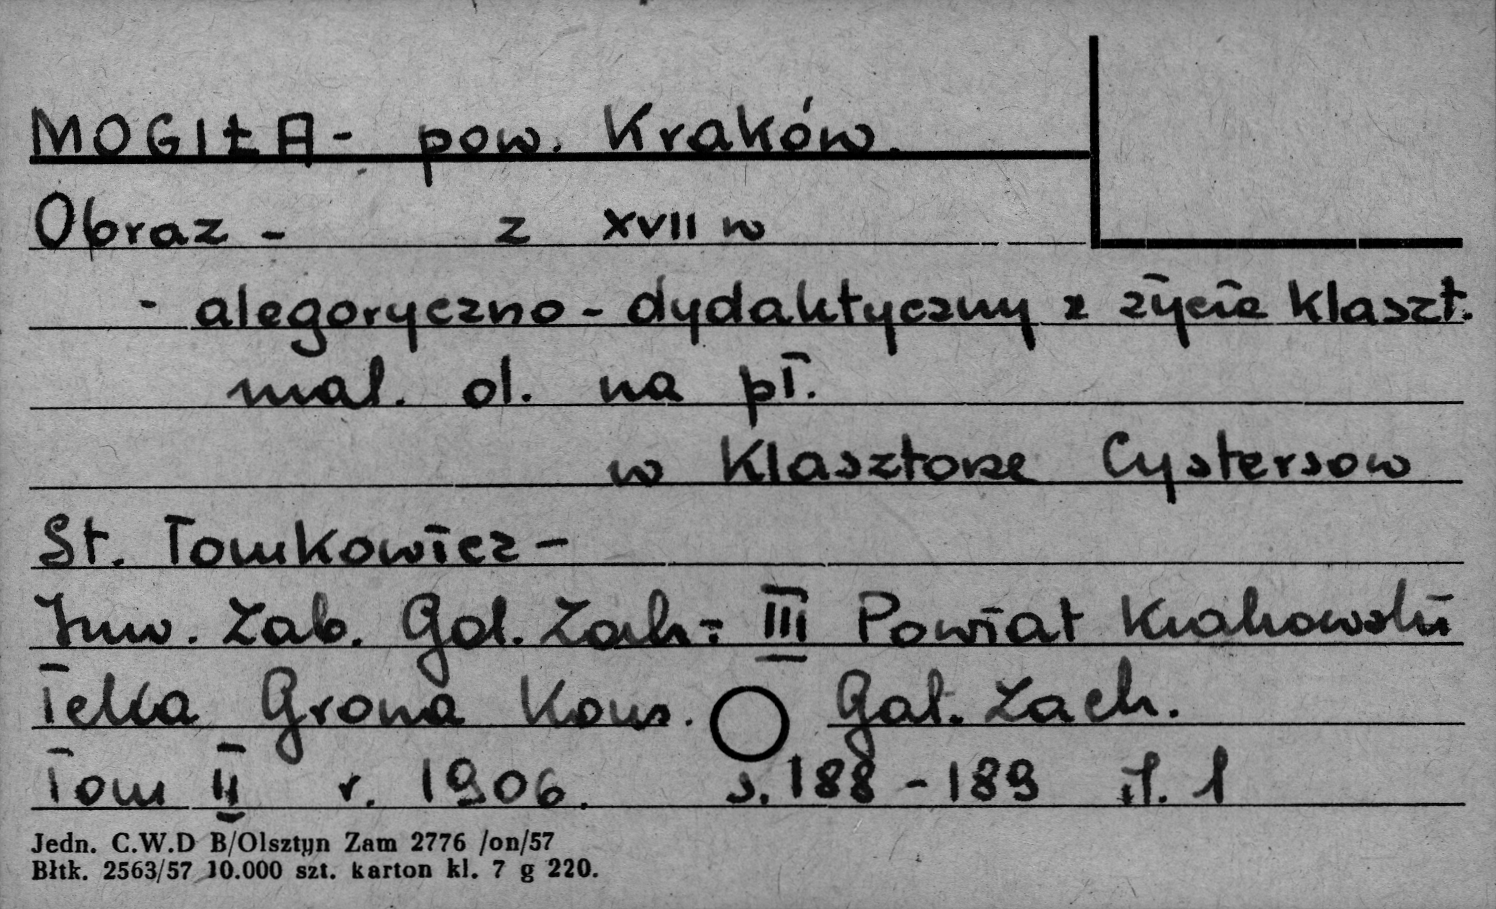 MOGIŁA - pow. Kraków.
Obraz - z XVII w
- alegoryczno - dydaktyczny z życia klaszt.
mal. ol. na pł.
w Klasztorze Cystersow
St. Tomkowicz -
Inw. Zab. Gal. Zach. III Powiat Krakowski
Teka Grona Kons. Gal. Zach.
Tom II r. 1906. s. 188 - 189 il. 1
Jedn. C.W.D B/Olsztyn Zam 2776 /on/57
Błtk. 2563/57 10.000 szt. karton kl. 7 g 220.